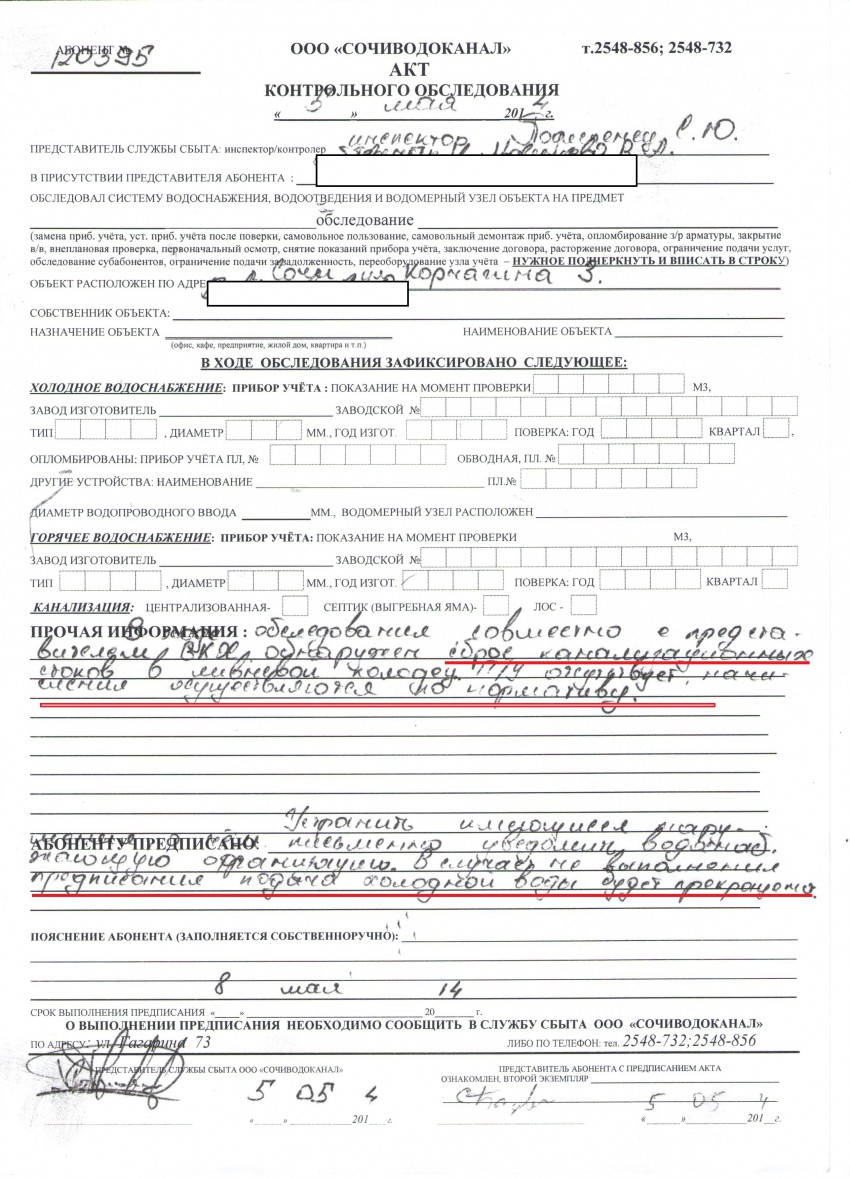 АБОНЕНТ №
120395
ООО «СОЧИВОДОКАНАЛ» т.2548-856; 2548-732
АКТ
КОНТРОЛЬНОГО ОБСЛЕДОВАНИЯ
« 5 » мая 2014 г.
инспектор С.Ю.
ПРЕДСТАВИТЕЛЬ СЛУЖБЫ СБЫТА: инспектор/контролер
В ПРИСУТСТВИИ ПРЕДСТАВИТЕЛЯ АБОНЕНТА :
ОБСЛЕДОВАЛ СИСТЕМУ ВОДОСНАБЖЕНИЯ, ВОДООТВЕДЕНИЯ И ВОДОМЕРНЫЙ УЗЕЛ ОБЪЕКТА НА ПРЕДМЕТ
обследование
(замена приб. учёта, уст. приб. учёта после поверки, самовольное пользование, самовольный демонтаж приб. учёта, опломбирование з/р арматуры, закрытие
в/в, внеплановая проверка, первоначальный осмотр, снятие показаний прибора учёта, заключение договора, расторжение договора, ограничение подачи услуг,
обследование субабонентов, ограничение подачи за задолженность, переоборудование узла учёта – НУЖНОЕ ПОДЧЕРКНУТЬ И ВПИСАТЬ В СТРОКУ)
г. Сочи ул. Корчагина 3.
ОБЪЕКТ РАСПОЛОЖЕН ПО АДРЕ
СОБСТВЕННИК ОБЪЕКТА:
НАЗНАЧЕНИЕ ОБЪЕКТА НАИМЕНОВАНИЕ ОБЪЕКТА
(офис, кафе, предприятие, жилой дом, квартира и т.п.)
В ХОДЕ ОБСЛЕДОВАНИЯ ЗАФИКСИРОВАНО СЛЕДУЮЩЕЕ:
ХОЛОДНОЕ ВОДОСНАБЖЕНИЕ: ПРИБОР УЧЁТА : ПОКАЗАНИЕ НА МОМЕНТ ПРОВЕРКИ М3,
ЗАВОД ИЗГОТОВИТЕЛЬ ЗАВОДСКОЙ №
ТИП , ДИАМЕТР ММ., ГОД ИЗГОТ. ПОВЕРКА: ГОД КВАРТАЛ ,
ОПЛОМБИРОВАНЫ: ПРИБОР УЧЁТА ПЛ, № ОБВОДНАЯ, ПЛ. №
ДРУГИЕ УСТРОЙСТВА: НАИМЕНОВАНИЕ ПЛ.№
ДИАМЕТР ВОДОПРОВОДНОГО ВВОДА ММ., ВОДОМЕРНЫЙ УЗЕЛ РАСПОЛОЖЕН
ГОРЯЧЕЕ ВОДОСНАБЖЕНИЕ: ПРИБОР УЧЁТА: ПОКАЗАНИЕ НА МОМЕНТ ПРОВЕРКИ М3,
ЗАВОД ИЗГОТОВИТЕЛЬ ЗАВОДСКОЙ №
ТИП , ДИАМЕТР ММ., ГОД ИЗГОТ. ПОВЕРКА: ГОД КВАРТАЛ
КАНАЛИЗАЦИЯ: ЦЕНТРАЛИЗОВАННАЯ- СЕПТИК (ВЫГРЕБНАЯ ЯМА)- ЛОС -
ПРОЧАЯ ИНФОРМАЦИЯ : В ходе обследования совместно с предста-
вителем ВКХ обнаружен сброс канализационных
стоков в ливневой колодец. ПУ отсутствует, начи-
сления осуществляются по нормативу.
Устранить имеющиеся нару-
АБОНЕНТУ ПРЕДПИСАНО: письменно уведомить водоснаб.
жающую организацию. В случае не выполнения
предписания подача холодной воды будет прекращена.
ПОЯСНЕНИЕ АБОНЕНТА (ЗАПОЛНЯЕТСЯ СОБСТВЕННОРУЧНО):
8 мая 14
СРОК ВЫПОЛНЕНИЯ ПРЕДПИСАНИЯ «____» 20 г.
О ВЫПОЛНЕНИИ ПРЕДПИСАНИЯ НЕОБХОДИМО СООБЩИТЬ В СЛУЖБУ СБЫТА ООО «СОЧИВОДОКАНАЛ»
ПО АДРЕСУ: ул Гагарина 73 ЛИБО ПО ТЕЛЕФОНУ: тел. 2548-732;2548-856
ПРЕДСТАВИТЕЛЬ СЛУЖБЫ СБЫТА ООО «СОЧИВОДОКАНАЛ» ПРЕДСТАВИТЕЛЬ АБОНЕНТА С ПРЕДПИСАНИЕМ АКТА
ОЗНАКОМЛЕН, ВТОРОЙ ЭКЗЕМПЛЯР
5 05 4 5 05 4
«____» 201 г. «____» 201 г.